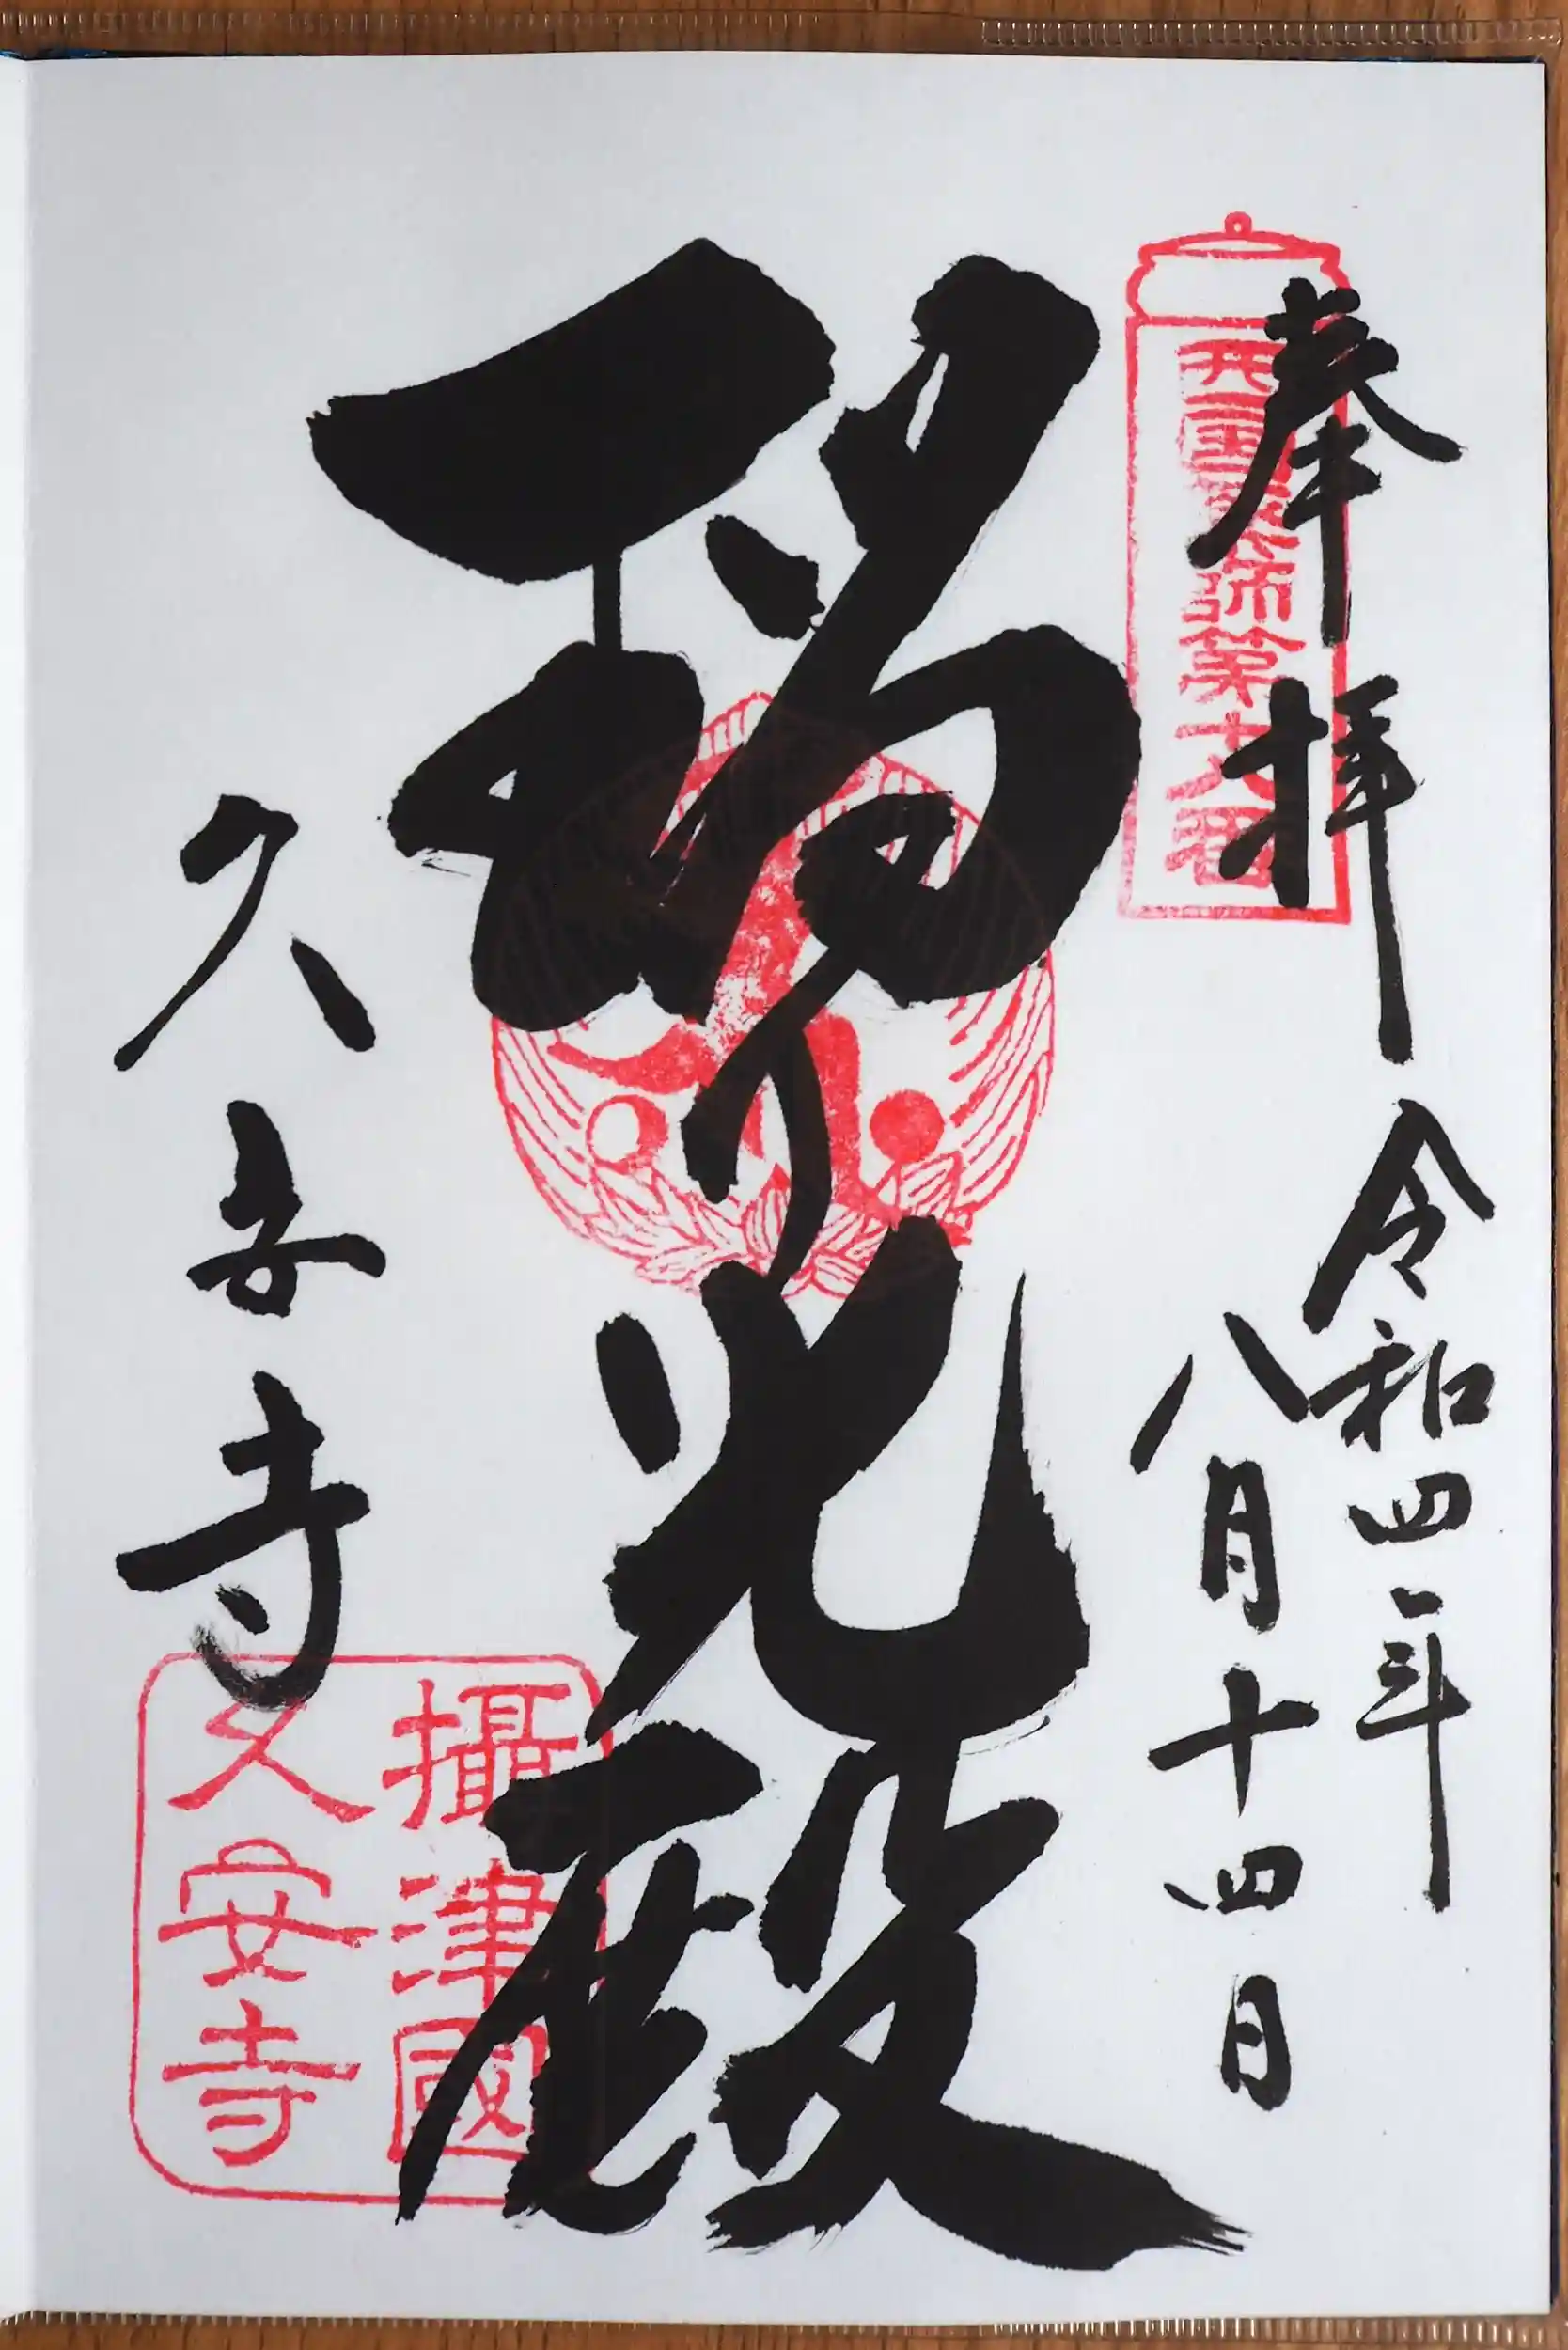 奉拝
令和四年
八月十四日
西国薬師第十八番
瑠璃光殿
久安寺
攝津國
久安寺